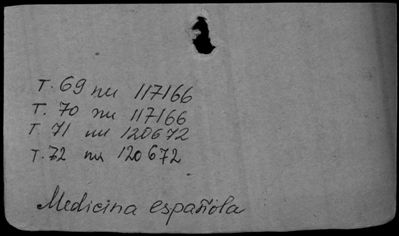 T. 69 nu 117166
T. 70 nu 117166
T. 71 nu 120672
T. 72 nu 120672
Medicina española